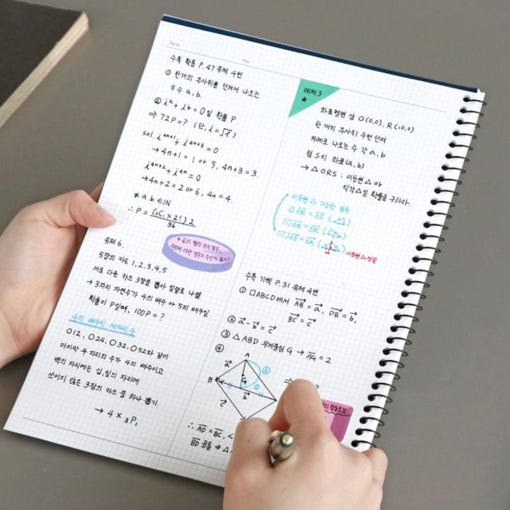 Date.
No.
수특 확통 P.47 유제 4번
① 한개의 주사위를 던져서 나오는
두 수 a, b.
② i^a + i^b = 0일 확률 P
⇒ 72P = ? (단, i = √-1)
sol. i^(4n+1) + i^(4n+3) = 0
→ 4n+1 = 1 or 5, 4n+3 = 3.
i^(4n+2) + i^(4n) = 0
→ 4n+2 = 2 or 6, 4n = 4.
* a, b ∈ N
36
유제 6.
5장의 카드 1, 2, 3, 4, 5
서로 다른 카드 3장을 뽑아 일렬로 나열
→ 3자리 자연수가 4의 배수 or 5의 배수일
확률이 P일때, 100P = ?
4의 배수인 세자리 수
012, 024, 032, 052와 같이
마지막 두 자리의 수가 4의 배수이고
백의 자리에는 십, 일의 자리에
쓰이지 않은 3장의 카드 중 하나 뽑기.
→ 4 × ₃P₁
예제 3
★
좌표평면 상 O(0,0), R(10,0)
한 개의 주사위 두번 던져
차례로 나오는 수 각 a, b
점 S의 좌표(a, b)
→ △ORS : 이등변△ or
직각△일 확률을 구하라.
이등변△ 가능한 경우
이등변 & 직각
수특 기벡 P.31 유제 4번
① □ABCD에서 AB = a, DB = b,
BC = c
② a - b = c
③ △ABD 무게중심 G → AG = 2
④
A
B
∴ AD = BC,
BD 공통 ⇒ △